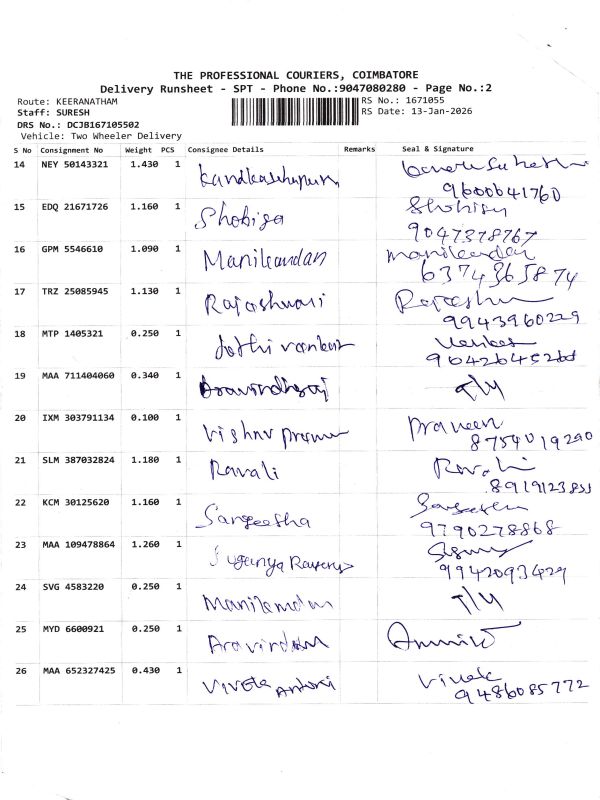 THE PROFESSIONAL COURIERS, COIMBATORE
Delivery Runsheet - SPT - Phone No.:9047080280 - Page No.:2
Route: KEERANATHAM RS No.: 1671055
Staff: SURESH RS Date: 13-Jan-2026
DRS No.: DCJB167105502
Vehicle: Two Wheeler Delivery
S No Consignment No Weight PCS Consignee Details Remarks Seal & Signature
14 NEY 50143321 1.430 1
9600641760
15 EDQ 21671726 1.160 1 Shobiga
9047378767
16 GPM 5546610 1.090 1 Manikandan Manikandan
6374365874
17 TRZ 25085945 1.130 1 Rajeshwari
9943960229
18 MTP 1405321 0.250 1 Jothi venkat Venkat
19 MAA 711404060 0.340 1 Aravindhraj
20 IXM 303791134 0.100 1 Vishnu Praveen
8754019290
21 SLM 387032824 1.180 1 Ravali Ravali
8919123855
22 KCM 30125620 1.160 1 Sangeetha
9790278868
23 MAA 109478864 1.260 1 Suganya
9942093429
24 SVG 4583220 0.250 1 Manikandan T/Y
25 MYD 6600921 0.250 1 Aravindan
26 MAA 652327425 0.430 1 Vivek Antoni Vivek
9486085772